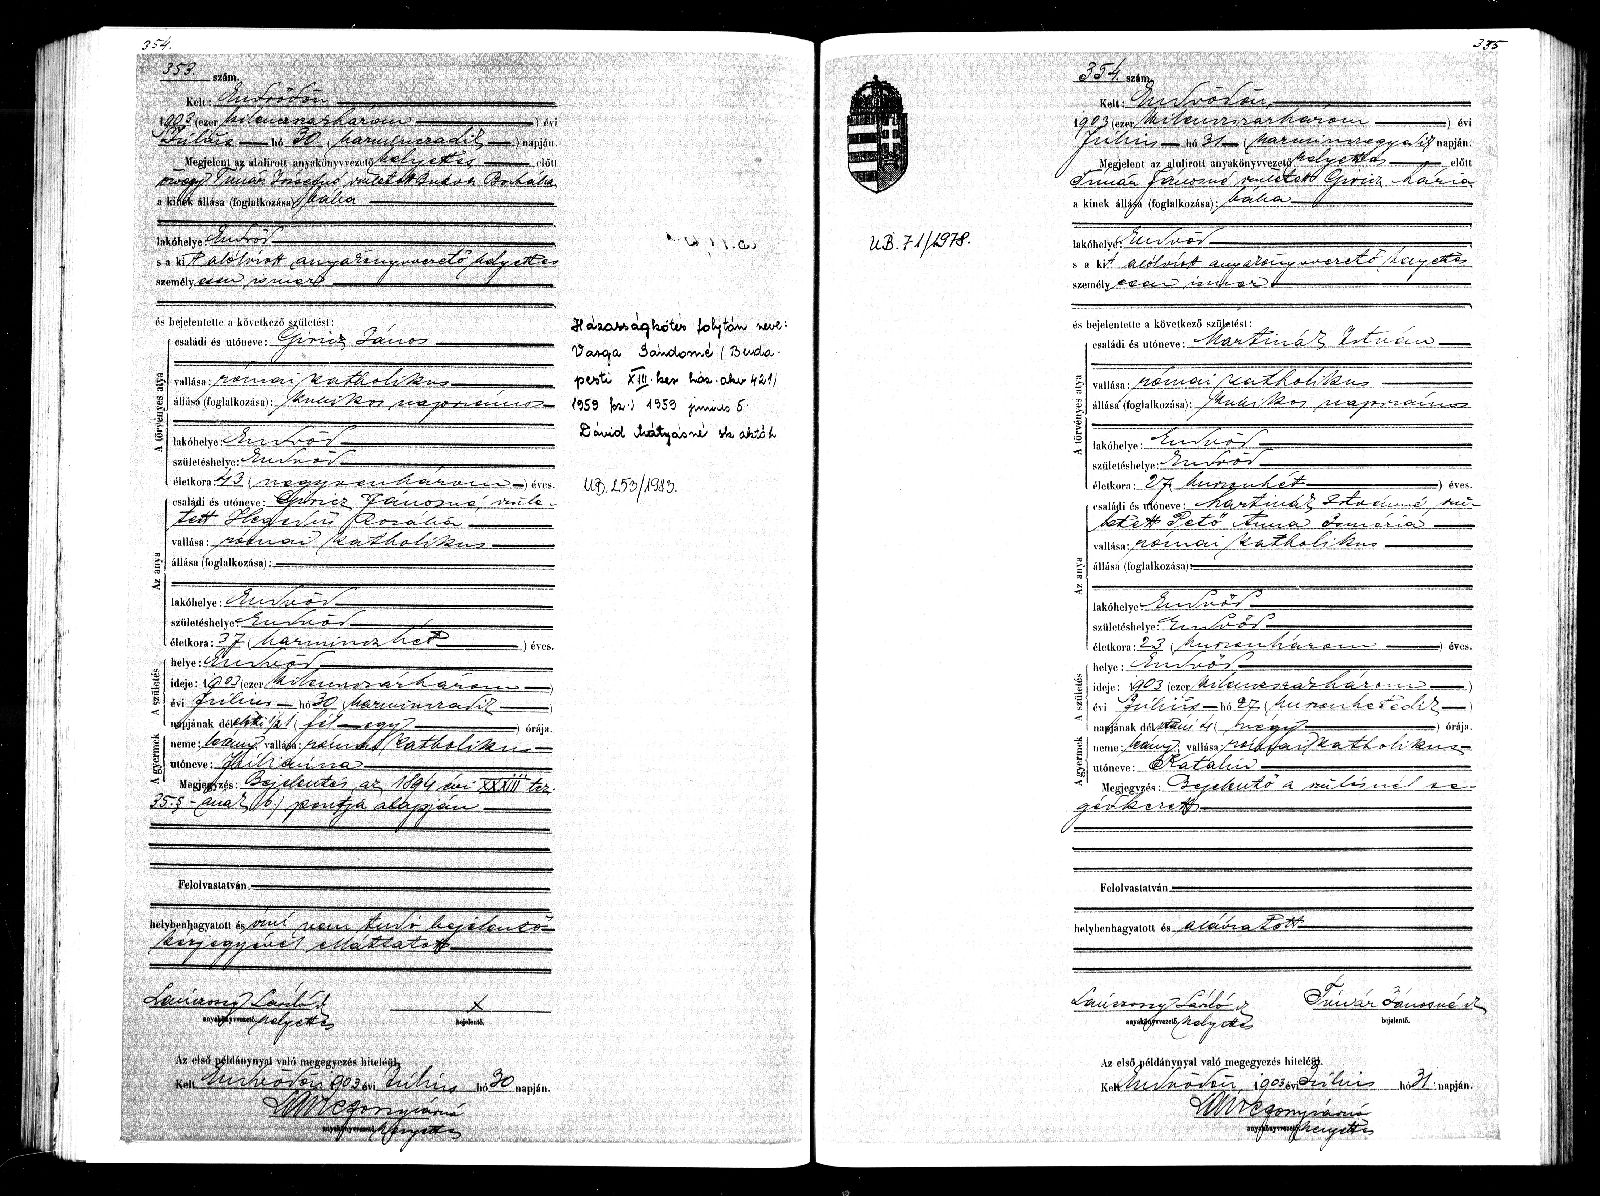 354.
353. szám.
Kelt: Endrődön
1903 (ezer kilencszázhárom ) évi
Július hó 30 (harminczadik ) napján.
Megjelent az alulirott anyakönyvvezető helyettes előtt
özvegy Tímár Józsefné született Borbála
a kinek állása (foglalkozása): bába
lakóhelye: Endrőd
s a kit alólirott anyakönyvvezető helyettes
személyesen ismer
és bejelentette a következő születést:
A törvényes atya
családi és utóneve: Giricz János
vallása: római katholikus
állása (foglalkozása): kubikos napszámos
lakóhelye: Endrőd
születéshelye: Endrőd
életkora: 43 (negyvenhárom ) éves.
Az anya
családi és utóneve: Giricz Jánosné, szüle-
tett Hegedűs Rozália
vallása: római katholikus
állása (foglalkozása):
lakóhelye: Endrőd
születéshelye: Endrőd
életkora: 37 (harminczhét ) éves.
A születés
helye: Endrőd
ideje: 1903 (ezer kilencszázhárom )
évi Július hó 30 (harminczadik )
napjának délelőtti ½1 (fél egy ) órája.
A gyermek
neme: leány, vallása: római katholikus
utóneve: Juliánna
Megjegyzés: Bejelentés az 1894 évi XXXIII tcz
35.§-ának b) pontja alapján
Felolvastatván
helybenhagyatott és írni nem tudó bejelentő
kézjegyével elláttatott
Lanczony László
anyakönyvvezető helyettes
X
bejelentő.
Az első példánynyal való megegyezés hiteléül
Kelt Endrődön 1903 évi Július hó 30 napján.
anyakönyvvezető helyettes
Házasságkötés folytán neve:
Varga Sándorné (Buda-
pesti XIII. ker. ház. akv 421/
1959 fsz.) 1959 június 5.
Dávid Mátyásné sk aktóh
UB. 253/1983.
335
UB. 71/1978.
354. szám.
Kelt: Endrődön
1903 (ezer kilencszázhárom ) évi
Július hó 31 (harminczegyedik) napján.
Megjelent az alulirott anyakönyvvezető helyettes előtt
Tímár Jánosné született Giricz Mária
a kinek állása (foglalkozása): bába
lakóhelye: Endrőd
s a kit alólirt anyakönyvvezető helyettes
személyesen ismer
és bejelentette a következő születést:
A törvényes atya
családi és utóneve: Martinák István
vallása: római katholikus
állása (foglalkozása): kubikos napszámos
lakóhelye: Endrőd
születéshelye: Endrőd
életkora: 27 (huszonhét ) éves.
Az anya
családi és utóneve: Martinák Istvánné, szü-
letett Pető Anna
vallása: római katholikus
állása (foglalkozása):
lakóhelye: Endrőd
születéshelye: Endrőd
életkora: 23 (huszonhárom ) éves.
A születés
helye: Endrőd
ideje: 1903 (ezer kilencszázhárom )
évi Július hó 27 (huszonhetedik )
napjának délutáni 4 (négy ) órája.
A gyermek
neme: leány, vallása: római katholikus
utóneve: Katalin
Megjegyzés: Bejelentő a szülésnél se-
gédkezett
Felolvastatván
helybenhagyatott és aláíratott
Lanczony László
anyakönyvvezető helyettes
Tímár Jánosné
bejelentő.
Az első példánynyal való megegyezés hiteléül
Kelt Endrődön, 1903 évi Július hó 31 napján.
anyakönyvvezető helyettes